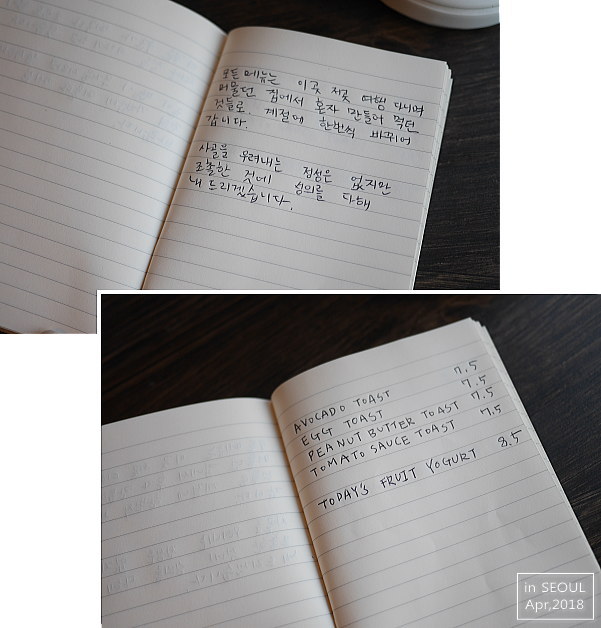 모든 메뉴는 이곳 저곳 여행 다니며
머물던 집에서 혼자 만들어 먹던
것들로 계절에 한번씩 바뀌어
갑니다.
사골을 우려내는 정성은 없지만
조촐한 것에 성의를 다해
내 드리겠습니다.
AVOCADO TOAST 7.5
EGG TOAST 7.5
PEANUT BUTTER TOAST 7.5
TOMATO SAUCE TOAST 7.5
TODAY'S FRUIT YOGURT 8.5
in SEOUL
Apr,2018